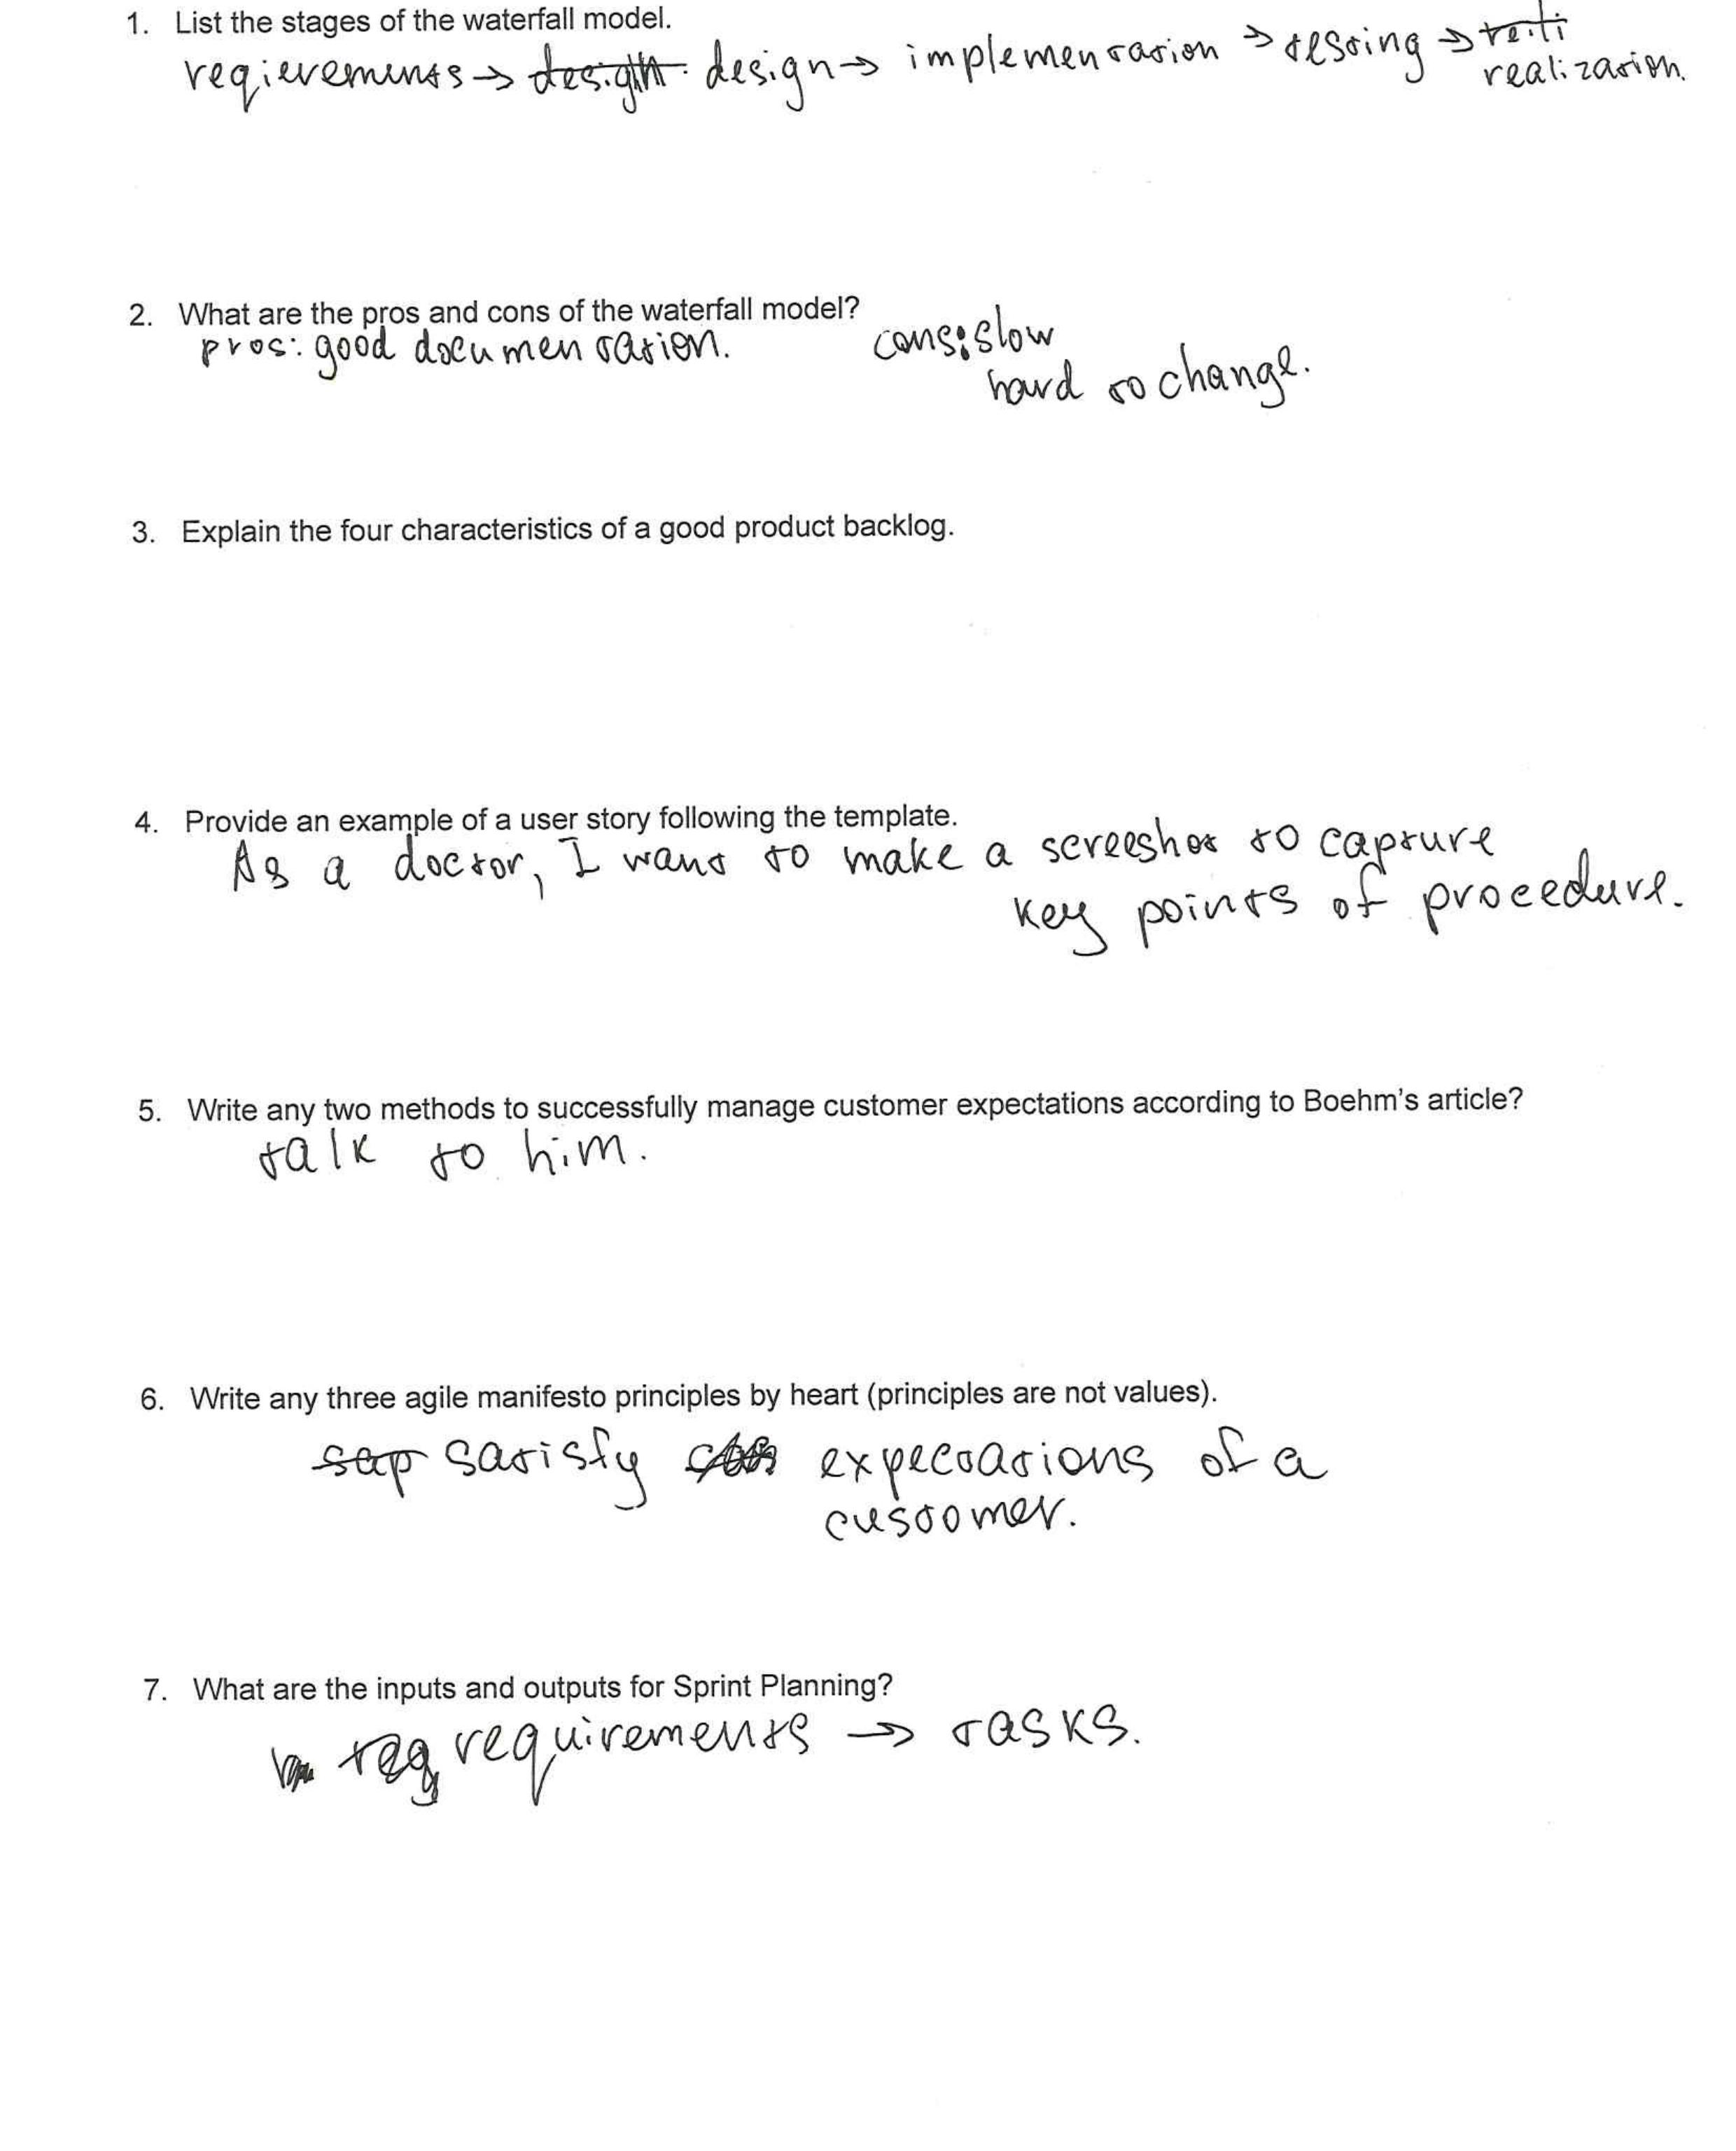 1. List the stages of the waterfall model.
reqierements → design → implementation → testing →
realization.
2. What are the pros and cons of the waterfall model?
pros: good documentation. cons: slow
hard to change.
3. Explain the four characteristics of a good product backlog.
4. Provide an example of a user story following the template.
As a doctor, I want to make a screeshot to capture
key points of procedure.
5. Write any two methods to successfully manage customer expectations according to Boehm's article?
talk to him.
6. Write any three agile manifesto principles by heart (principles are not values).
satisfy expectations of a
customer.
7. What are the inputs and outputs for Sprint Planning?
requirements → tasks.